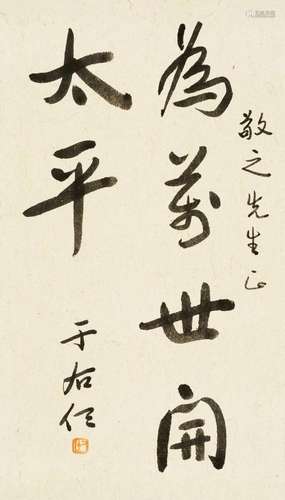 敬之先生正
為萬世開
太平
于右任